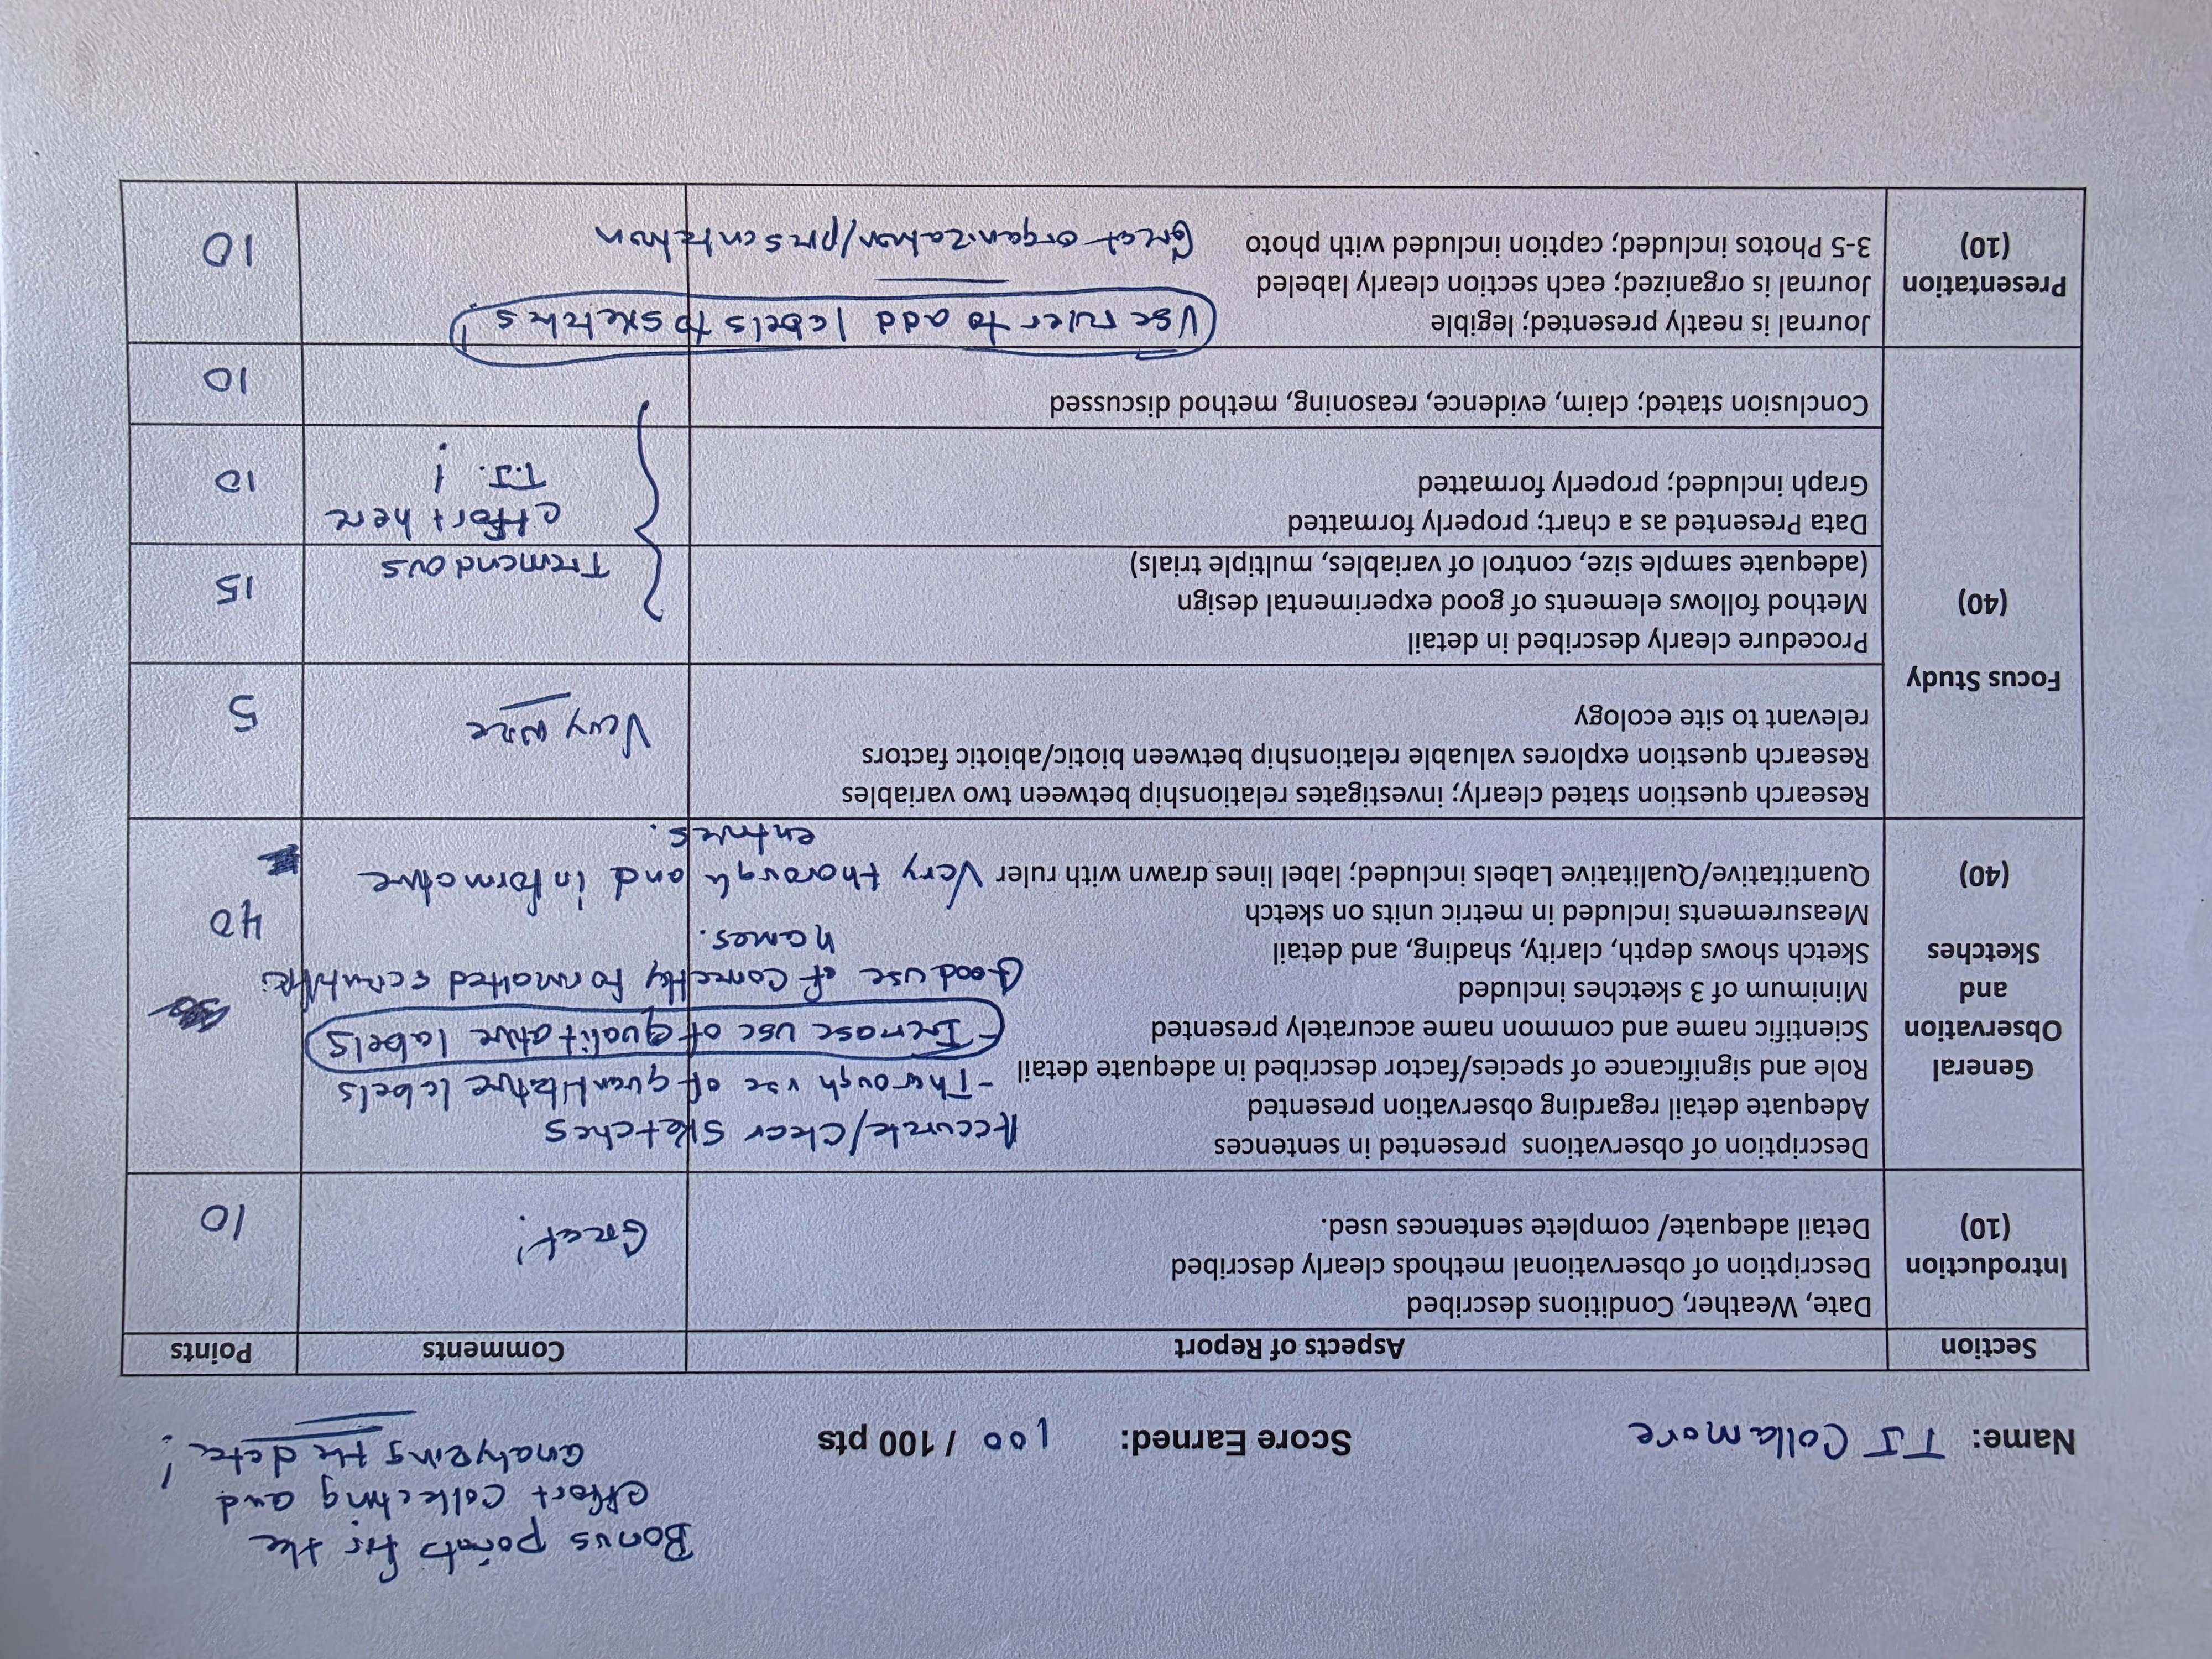 Bonus points for the
effort collecting and
analyzing the data!
Name: TJ Collamore Score Earned: 100 /100 pts
Section Aspects of Report Comments Points
Introduction
(10)
Date, Weather, Conditions described
Description of observational methods clearly described
Detail adequate/ complete sentences used.
Great!
10
General
Observation
and
Sketches
(40)
Description of observations presented in sentences
Adequate detail regarding observation presented
Role and significance of species/factor described in adequate detail
Scientific name and common name accurately presented
Minimum of 3 sketches included
Sketch shows depth, clarity, shading, and detail
Measurements included in metric units on sketch
Quantitative/Qualitative Labels included; label lines drawn with ruler
Accurate/Clear Sketches
- Thorough use of quantitative labels
- Increase use of qualitative labels
Good use of correctly formatted scientific
names.
Very thorough and informative
entries.
40
Focus Study
(40)
Research question stated clearly; investigates relationship between two variables
Research question explores valuable relationship between biotic/abiotic factors
relevant to site ecology
Very nice
5
Procedure clearly described in detail
Method follows elements of good experimental design
(adequate sample size, control of variables, multiple trials)
15
Data Presented as a chart; properly formatted
Graph included; properly formatted
10
Tremendous
effort here
T.J.!
Conclusion stated; claim, evidence, reasoning, method discussed
10
Presentation
(10)
Journal is neatly presented; legible
Journal is organized; each section clearly labeled
3-5 Photos included; caption included with photo
Use ruler to add labels to sketches!
Great organization/presentation
10